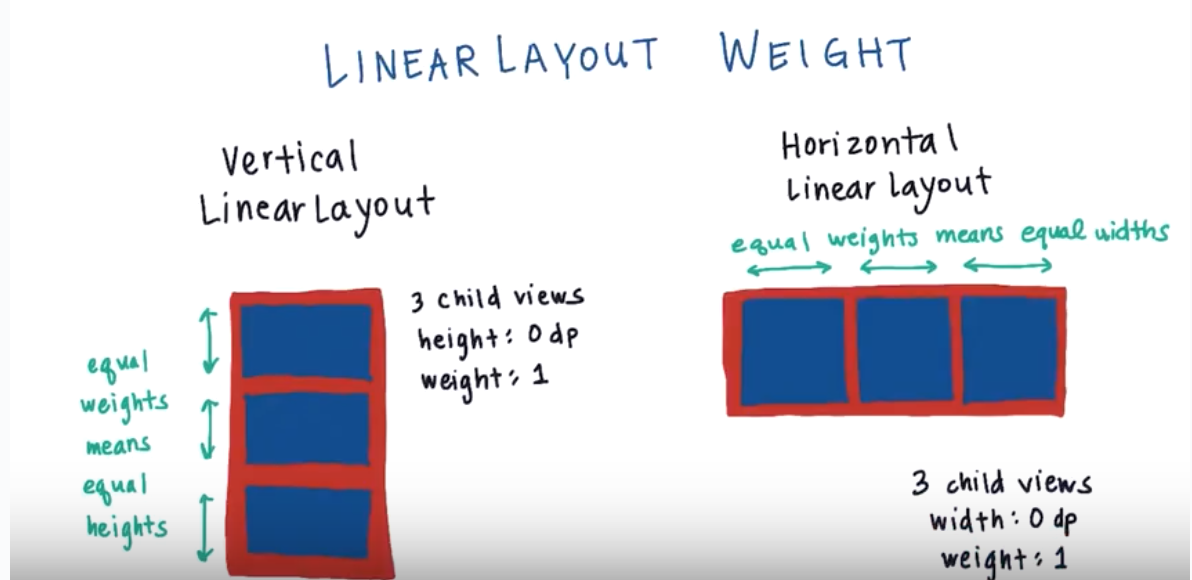 LINEAR LAYOUT WEIGHT
Vertical
Linear Layout
equal
weights
means
equal
heights
3 child views
height: 0 dp
weight: 1
Horizontal
Linear layout
equal weights means equal widths
3 child views
width: 0 dp
weight: 1